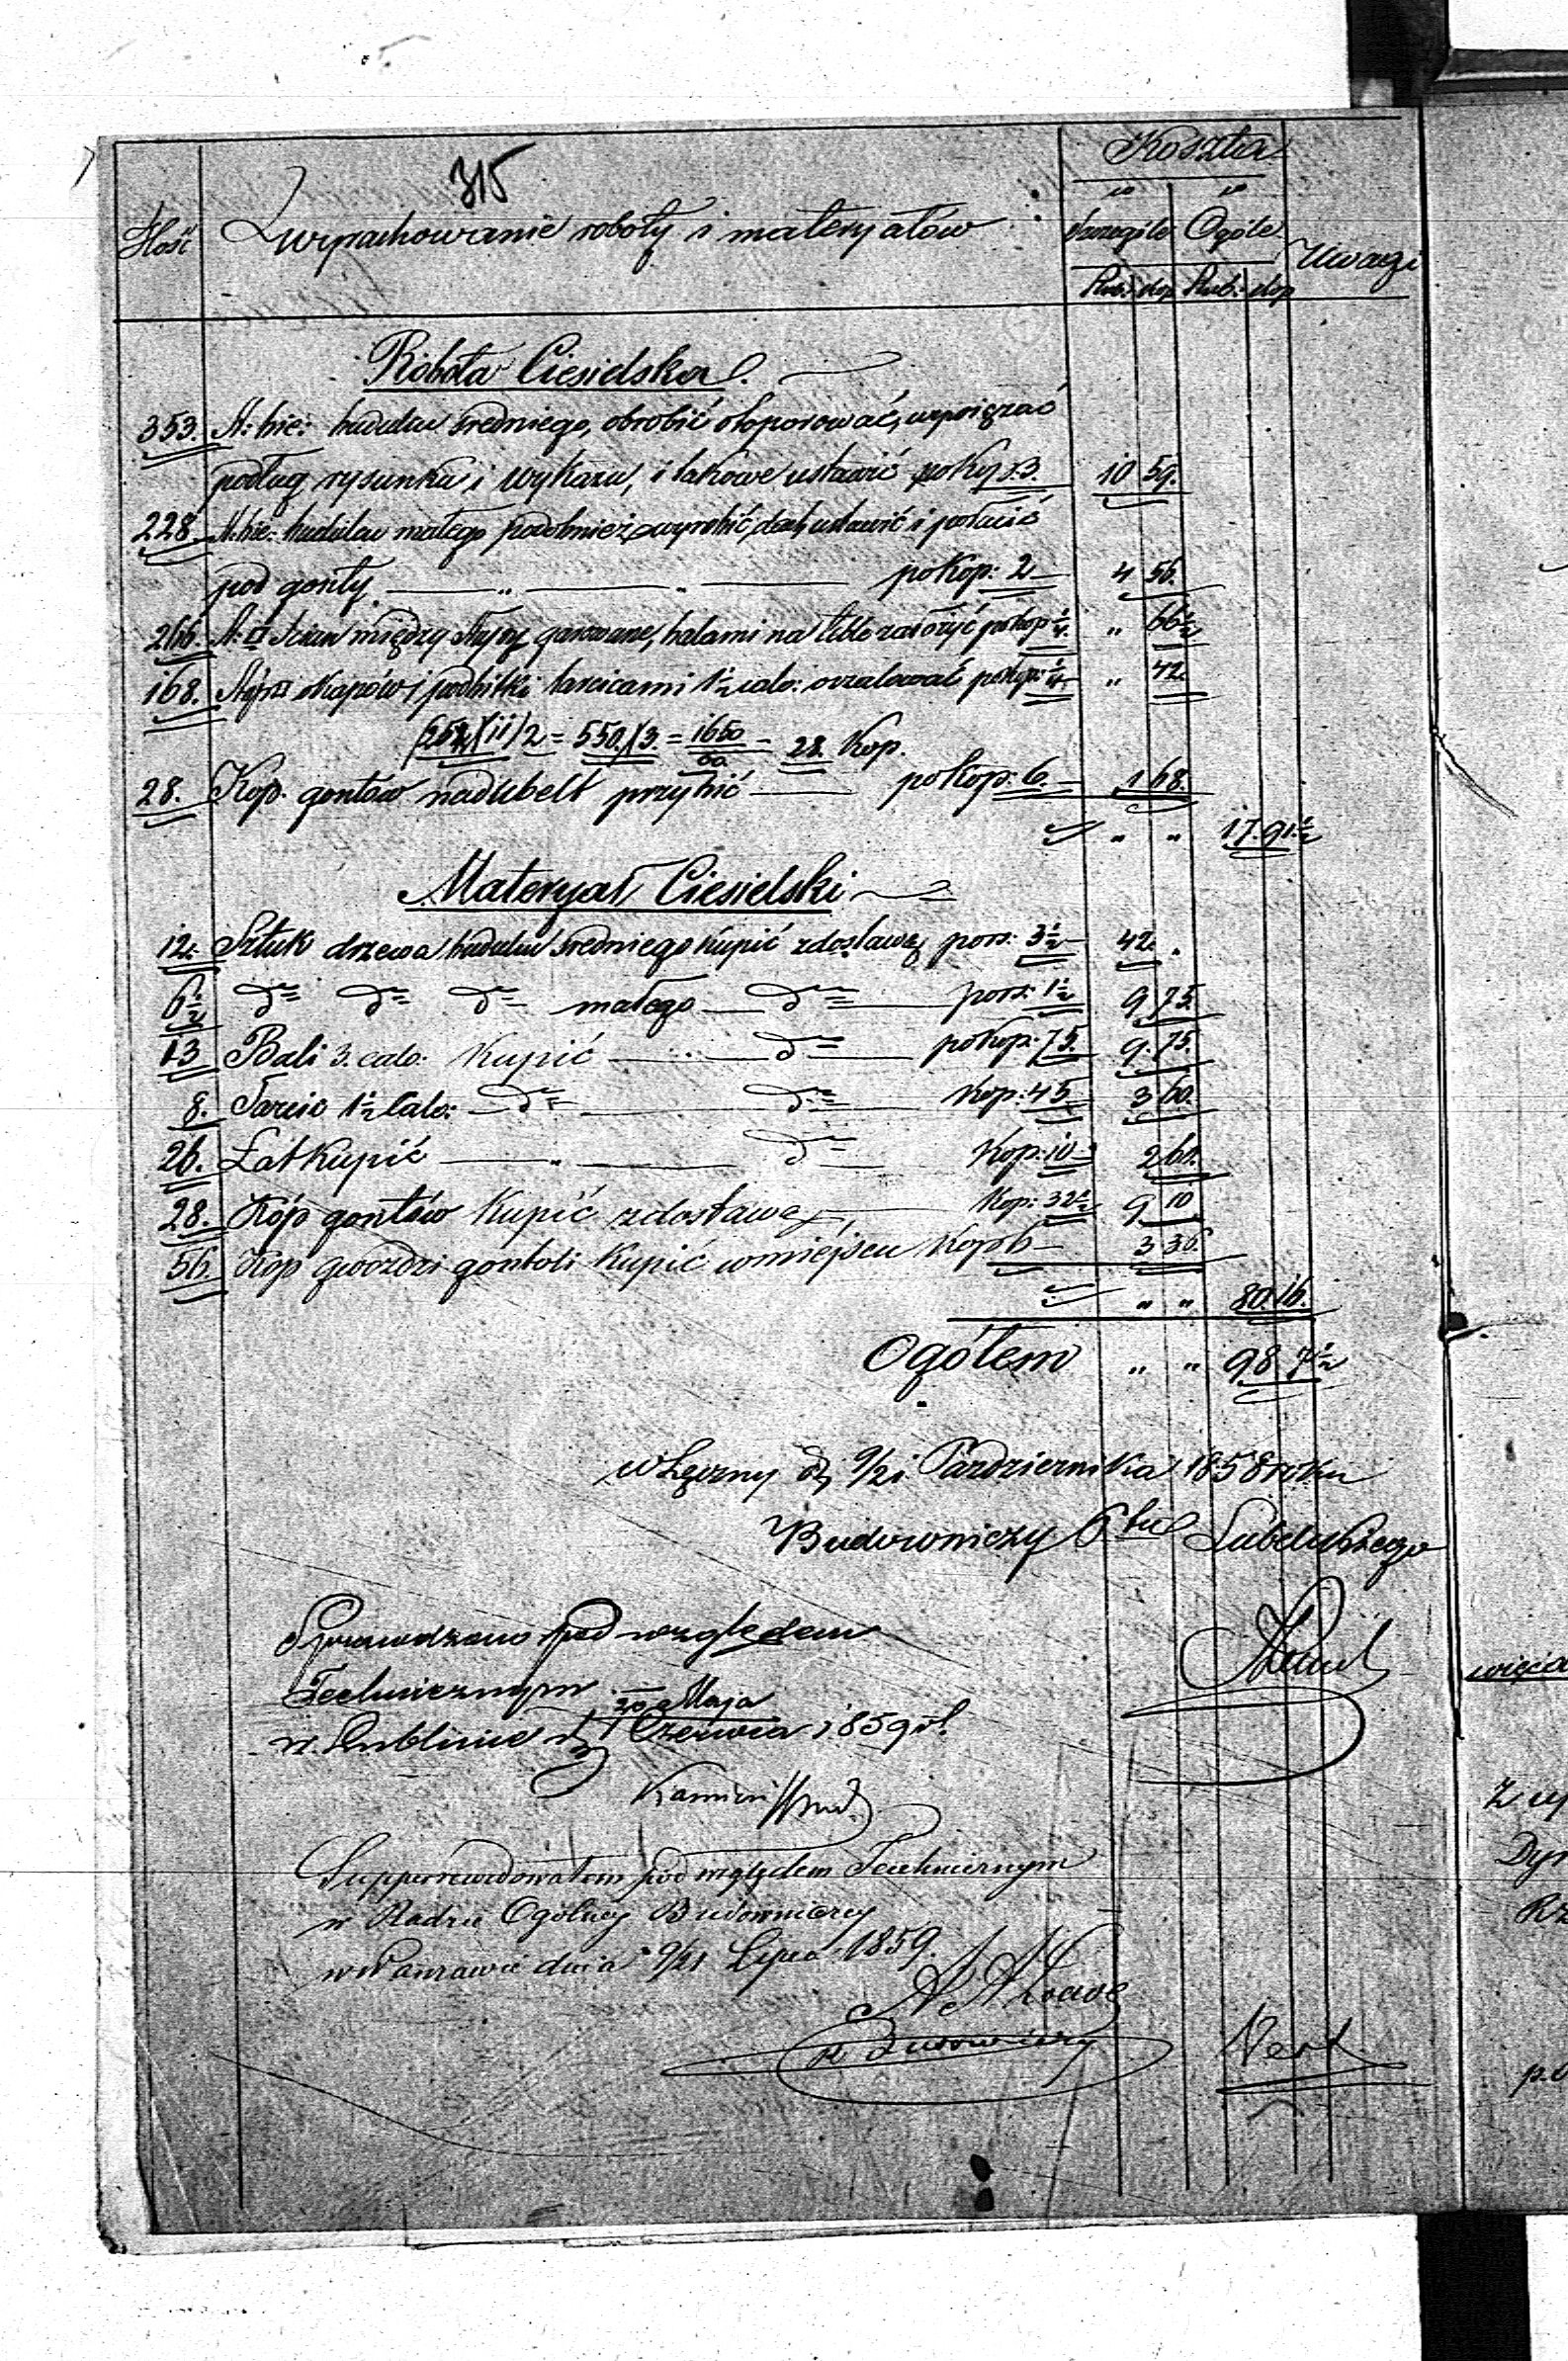 315
Koszta
w w
Ilość Wyrachowanie roboty i materyałów Szczególe Ogóle Uwagi
Rub: kop Rub: kop
Robota Ciesielska.
353. St: bie: budulcu średniego, obrobić owiązać
podług rysunku i wykazu, i takowe ustawić po Kop. 3. 10 59.
228. St: bie: budulcu małego podobnież wyrobić, dach ustawić i połacić
pod gonty „ „ po Kop: 2 4 56.
266. St: □ ścian między słupy balami na założyć po kop ¼. „ 66½
168. Stóp □ okapów i podbitki tarcicami 1½ calo: oszalować po kop: ¼ „ 42.
11)2 = 550.)(3. = 1650/60 = 28. Kop.
28. Kop. gontów nadubelt przybić po Kop: 6. 1 68.
„ „ 17. 91½
Materyał Ciesielski
12. Sztuk drzewa budulcu średniego kupić z dostawą po rs: 3½ 42. „
6½ dto dto dto małego dto po rs: 1½ 9 75.
13 Bali 3. calo: Kupić dto po Kop: 75. 9. 75.
8. Tarcic 1½ Calo: dto dto Kop: 45 3 60.
26. Łat Kupić „ dto Kop: 10 2 60.
28. Kóp gontów Kupić z dostawą Kop: 32½ 9 10
56. Kóp gwoździ gontali Kupić w miejscu Kop 6 3 36.
„ „ 80. 16.
Ogółem „ „ 98 7½
w Łęczny d. 9/21 Października 1858 roku
Budowniczy Ptu Lubelskiego
Sprawdzono pod względem
Technicznym
20 Maja
w Lublinie d. 1 Czerwca 1859 r.
Superrewidowałem pod względem Technicznym
w Radzie Ogólney Budowniczey
w Warszawie dnia 9/21 Lipca 1859.
R. Budowniczy
Vert